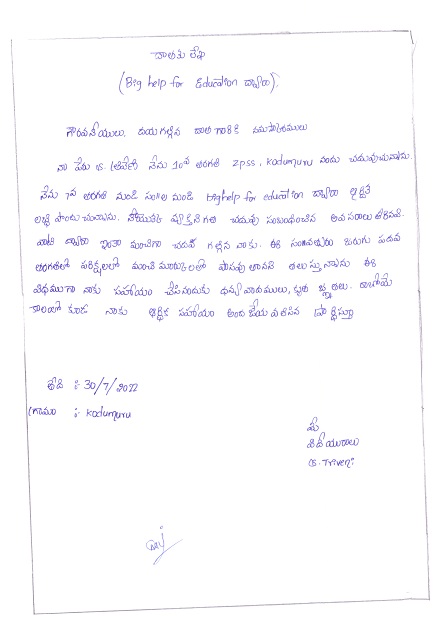 దాతకు లేఖ
(Big help for Education ద్వారా),
గౌరవనీయులు, దయగల్గిన దాత గారికి నమస్కారములు
నా పేరు S. త్రివేణి నేను 10వ తరగతి ZPSS, kodumuru నందు చదువుచున్నాను.
నేను 7వ తరగతి నుండి నుండి bighelp for education ద్వారా ఆర్థిక
లబ్ధి పొందుచున్నాను. నాయొక్క వ్యక్తిగత చదువు సంబంధించిన అవసరాలు తీరినవి.
వాటి ద్వారా ఇంకా మంచిగా చదవ గల్గిన నాకు. ఈ సంవత్సరం జరుగు పదవ
తరగతిలో పరీక్షలలో మంచి మార్కులతో పాసవు తానని తెలుస్తున్నాను ఈ
విధముగా నాకు సహాయం చేసినందుకు ధన్యవాదములు, కృతజ్ఞతలు.
కూడ నాకు ఆర్థిక సహాయం అంద చేయవలసిన ప్రార్థిస్తూ
తేది :- 30/7/2022
గ్రామం :- kodumuru
మీ
విధేయురాలు
S. Triveni